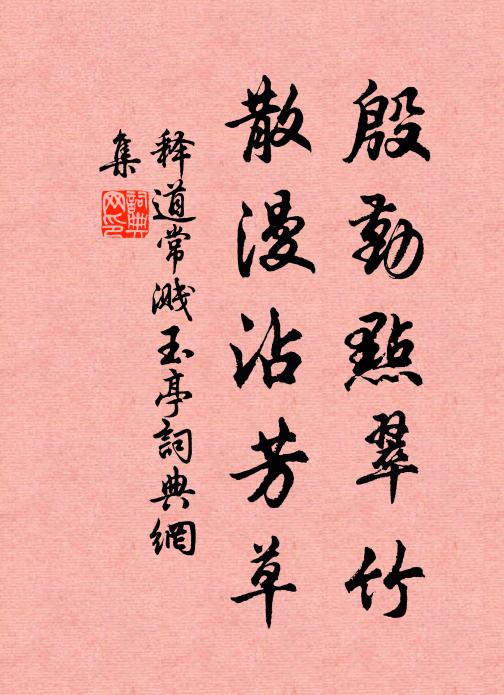 殷勤點翠竹
散漫沾芳草
释道常濺玉亭詞典網
集
詞典網印